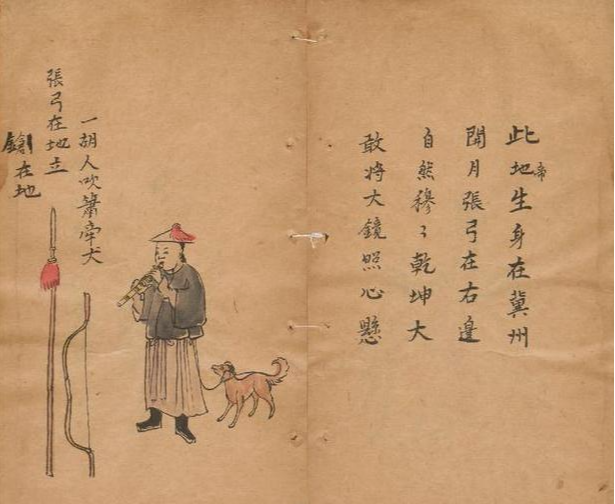 此地生身在冀州
帝
開月張弓在右邉
自然穆〻乾坤大
敢将大鏡照心懸
一胡人吹簫牽犬
張弓在地立
鎗在地